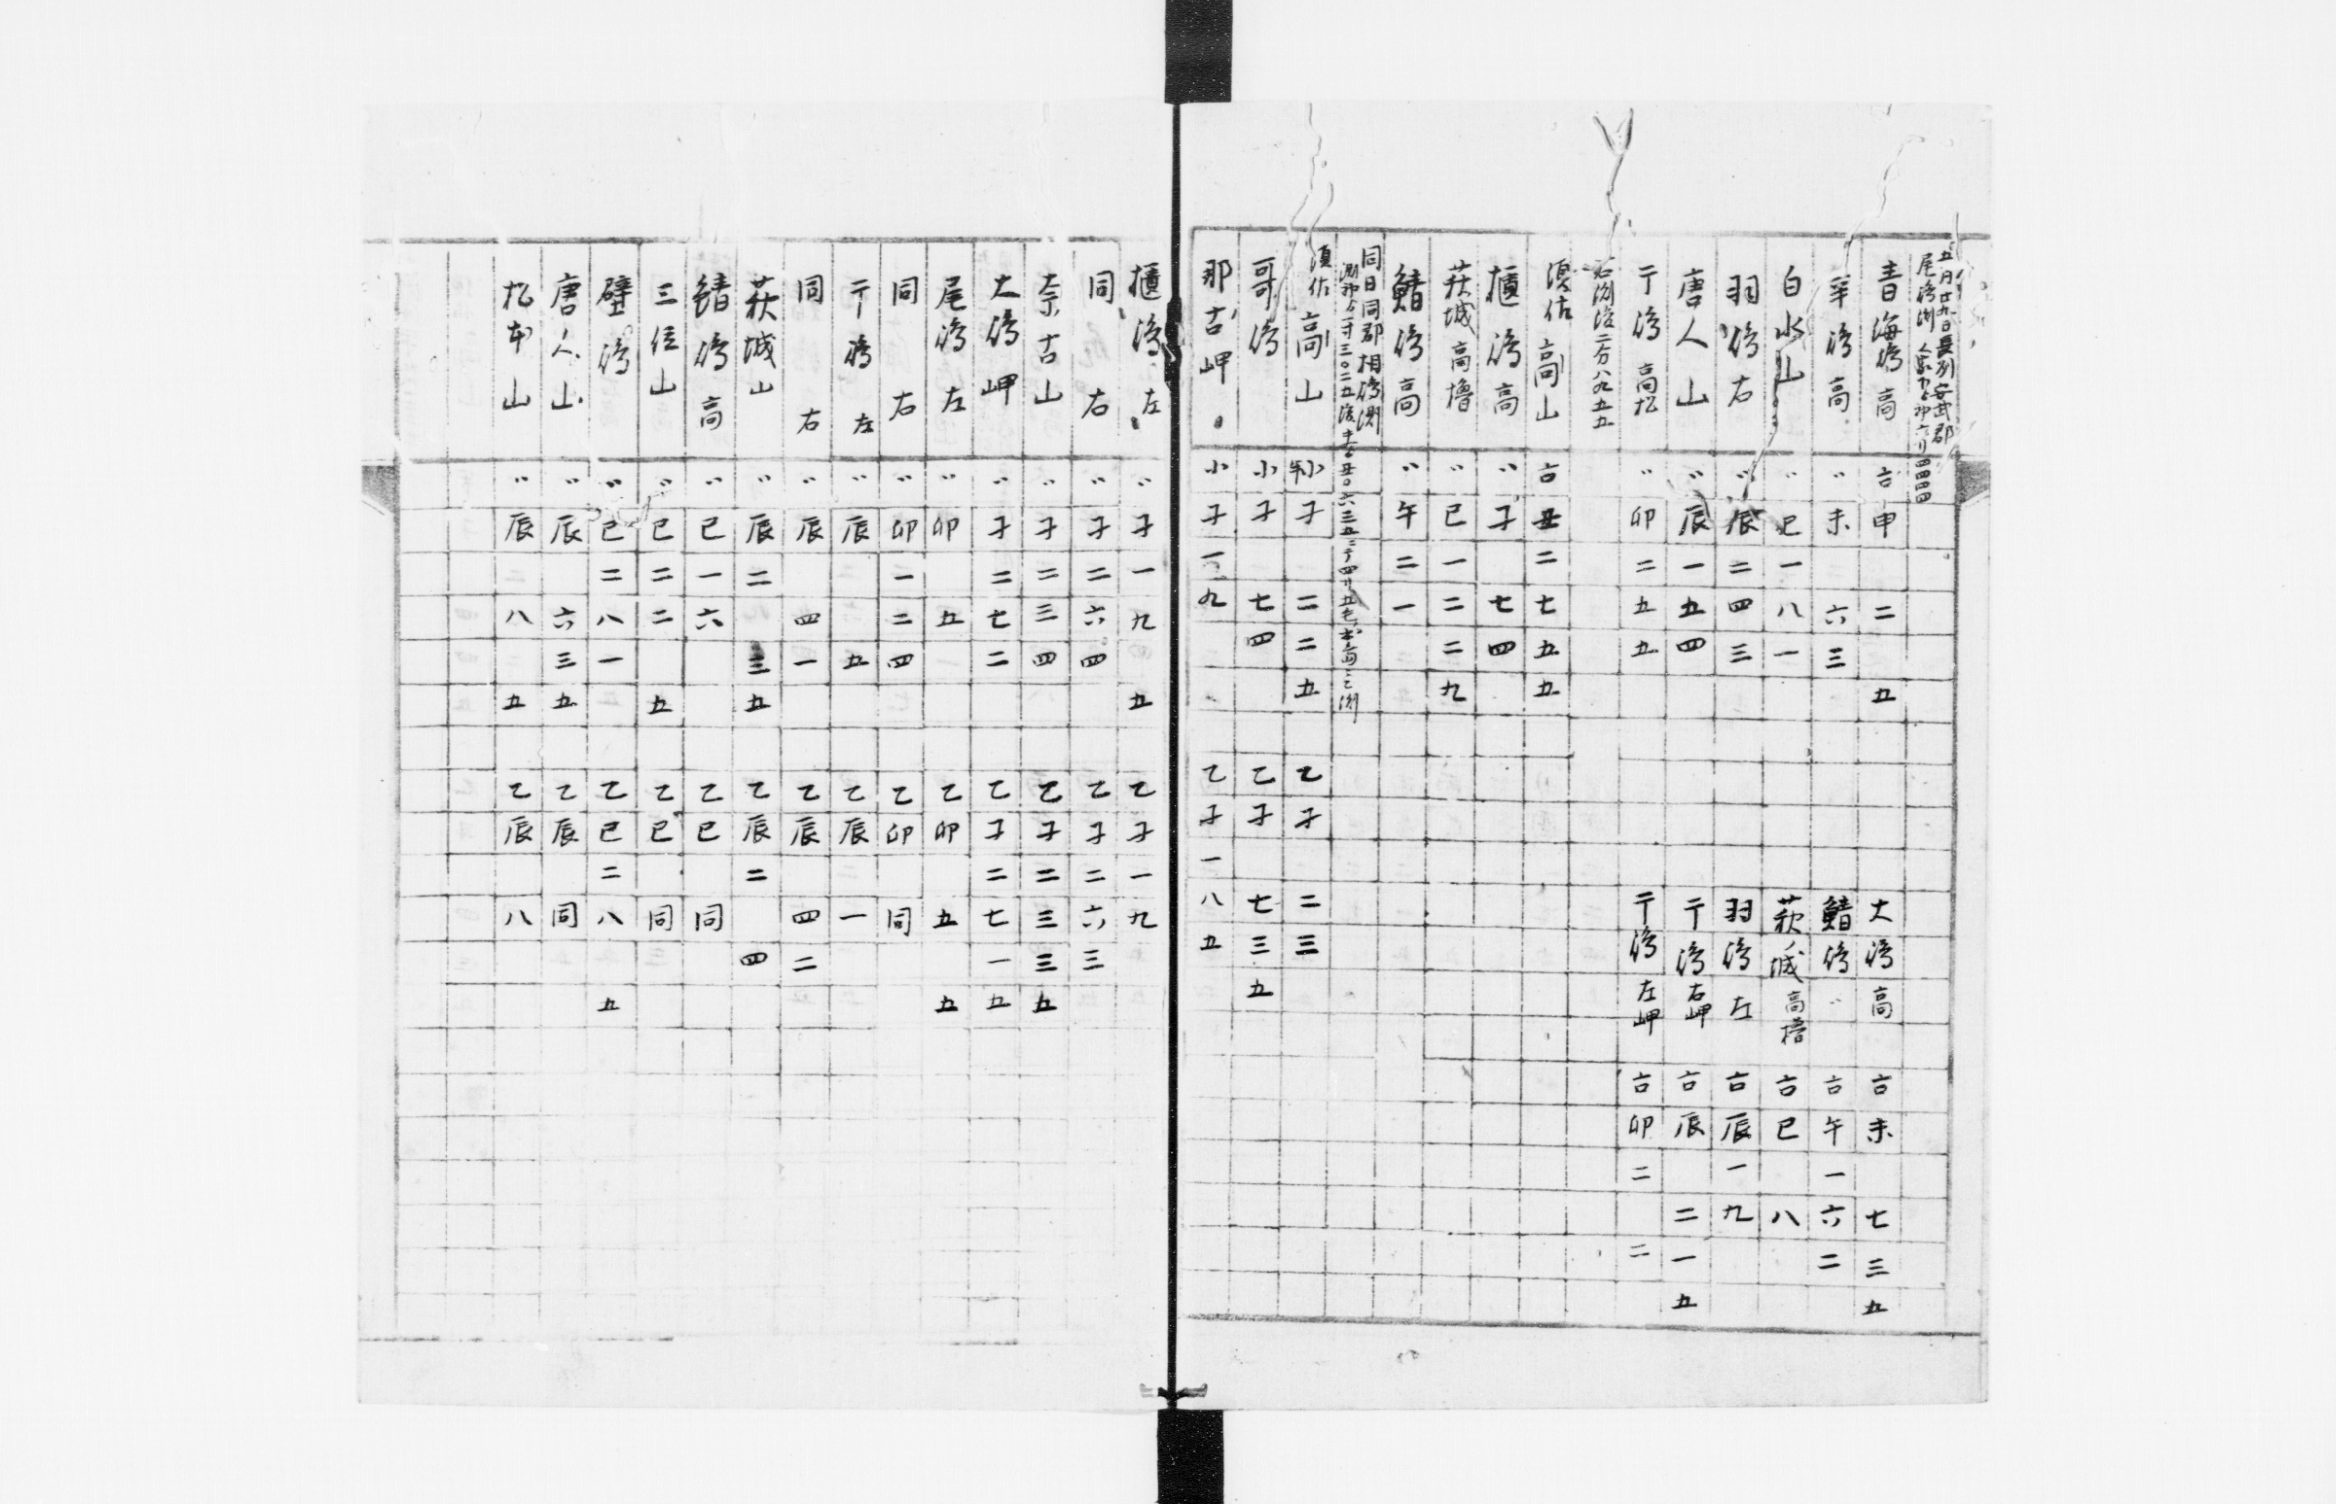 五月廿九日長刕安武郡
尾嶋測
青海嶋高 古申 二 五 大嶋高 古未 七三五
羍嶋高 〃未 六三 鯖嶋〃 古午一六二
白水山 〃巳一八一 萩城高櫓 古巳 八
羽嶋右 〃辰二四三 羽嶋左 古辰一九
唐人山 〃辰一五四 干嶋右岬 古辰 二一五
干嶋高松 〃卯二五五 干嶋左岬 古卯二 二
右測後二分八九五五
須佐高山 古丑二七五五
櫃嶋高 〃子 七四
萩城高櫓 〃巳一二二九
鯖嶋高 〃午二一
同日同郡相嶋測
須佐高山 小子 二二五 乙子 二三
哥嶋 小子 七四 乙子 七三五
那古岬 小子一九 乙子一八五
櫃嶋左 〃子一九 五 乙子一九
同右 〃子二六四 乙子二六三
奈古山 〃子二三四 乙子二三三五
大嶋岬 〃子二七二 乙子二七一五
尾嶋左 〃卯 五 乙卯 五 五
同右 〃卯一二四 乙卯 同
干嶋左 〃辰 五 乙辰 一
同右 〃辰 四一 乙辰 四二
萩城山 〃辰二 三五 乙辰二 四
鯖嶋高 〃巳一六 乙巳 同
三位山 〃巳二二 五 乙巳 同
壁嶋 〃巳二八一 乙巳二八 五
唐人山 〃辰 六三五 乙辰 同
松本山 〃辰 八 五 乙辰 八